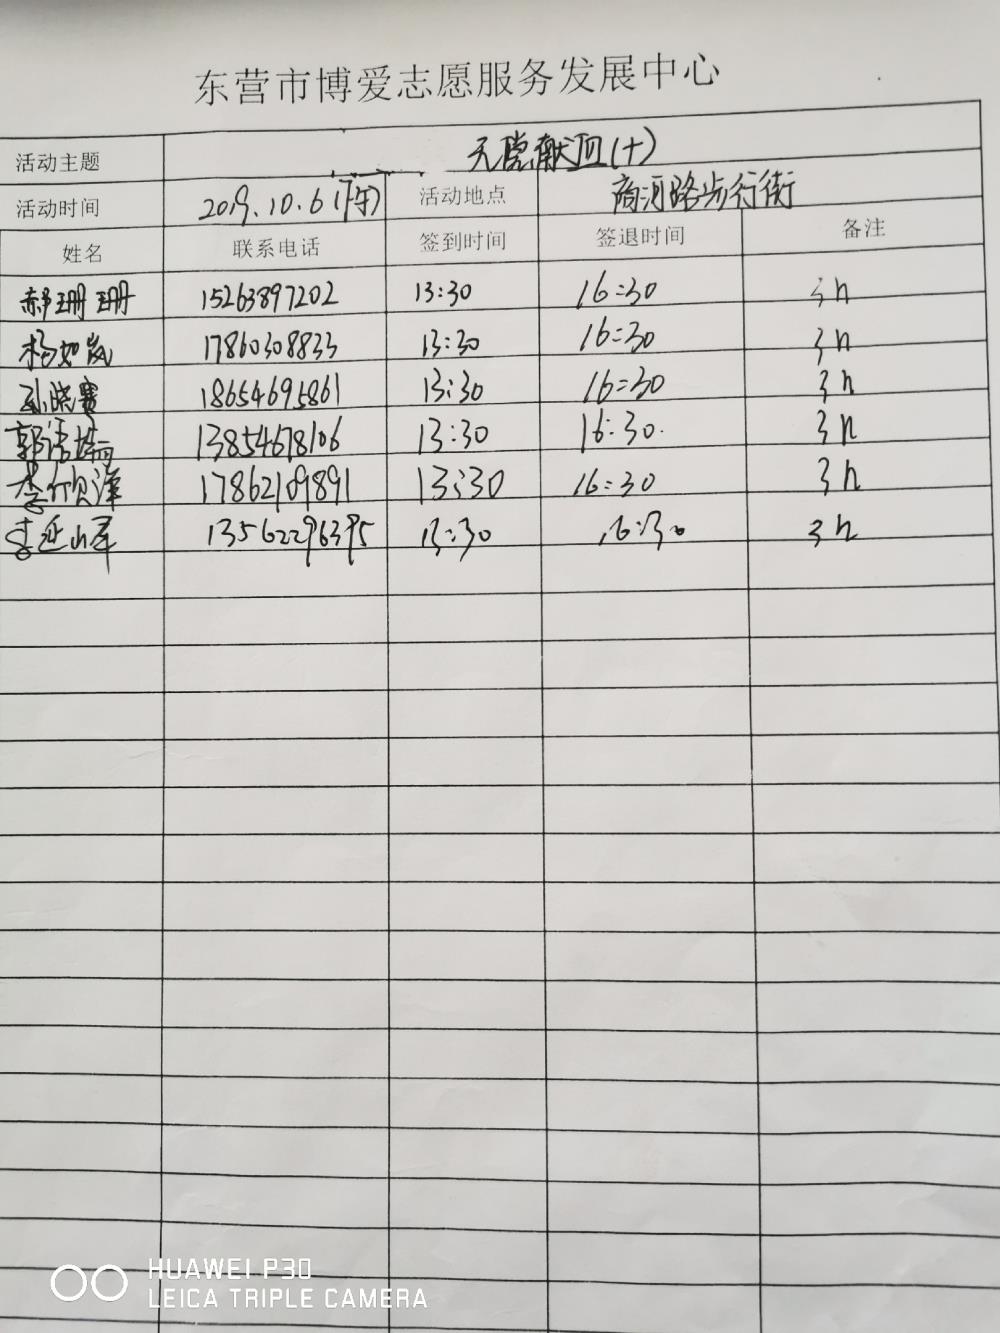 东营市博爱志愿服务发展中心
活动主题 无偿献血(十)
活动时间 2019.10.6(下午) 活动地点 商河路步行街
姓名 联系电话 签到时间 签退时间 备注
郝珊珊 15263897202 13:30 16:30 3h
杨如岚 17860308833 13:30 16:30 3h
孙晓赛 18654695861 13:30 16:30 3h
郭 13854678106 13:30 16:30. 3h
李欣泽 17862109891 13:30 16:30 3h
李延军 13562296395 13:30 16:30 3h
HUAWEI P30
LEICA TRIPLE CAMERA